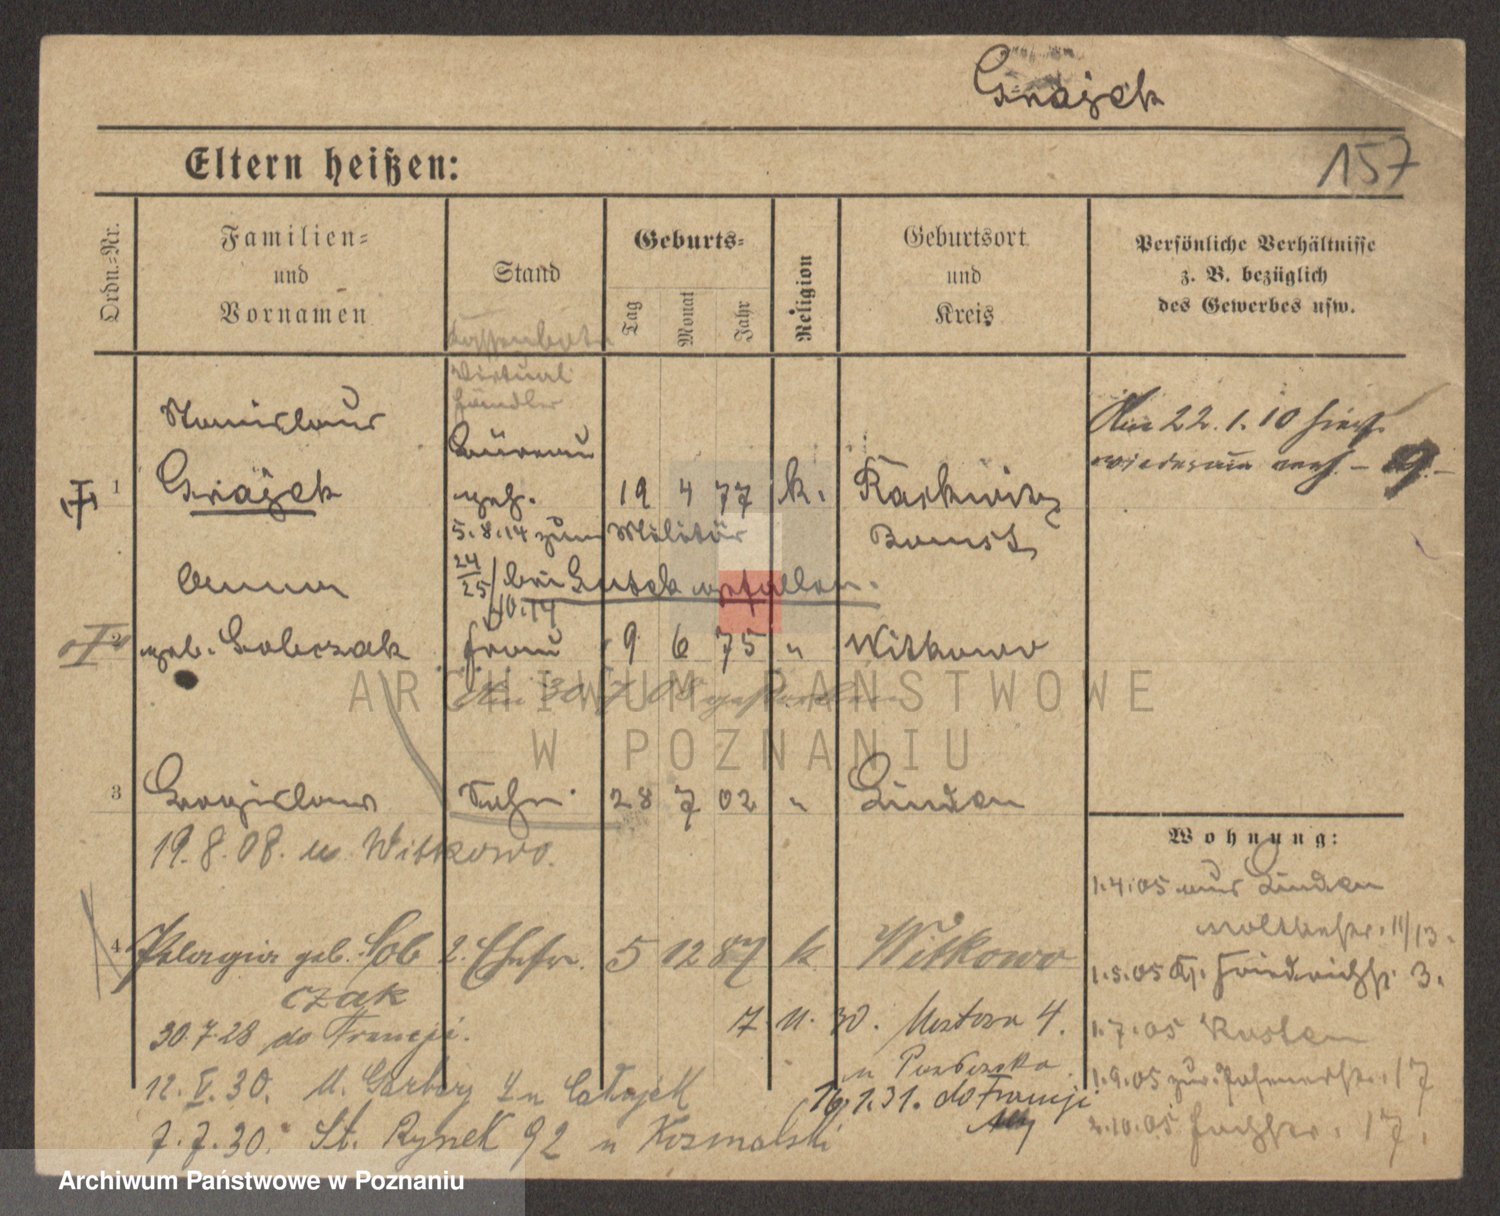 Grajek
157
Eltern heißen:
Ordn.-Nr.
Familien-
und
Vornamen
Stand
Geburts-
Tag
Monat
Jahr
Religion
Geburtsort
und
Kreis
Persönliche Verhältnisse
z. B. bezüglich
des Gewerbes usw.
händler
Stanislaus
Büreau
Am 22.1.10 hier
wiederum
1
Grajek
geh.
19 4 77 k. Rackwitz
5.8.14 zum Militär
Bomst
24/25/10.14
bei gefallen.
2
geb. Sobczak
Frau
9 6 75 " Witkowo
Am 30 7 08 gestorben
3
Sohn
28 7 02 " Linden
19.8.08. Witkowo.
Wohnung:
1.4.05 aus Linden
Moltkestr. 11/13.
4
Pelagia geb. Sobczak
2. Ehefr.
5 12 87 k Witkowo
1.5.05 Friedrichstr. 3.
30.7.28 do Francji.
7 11. 30. Mostowa 4.
1.7.05 Kosten
12.V.30. M. Garbary 4 u
16.1.31. do Francji
1.9.05 zur. Posenerstr. 17
7.7.30. St. Rynek 92 u
2.10.05 17.
ARCHIWUM PAŃSTWOWE
W POZNANIU
Archiwum Państwowe w Poznaniu